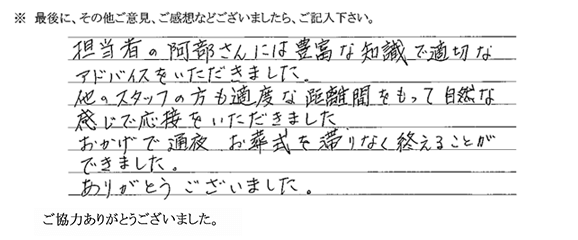 ※ 最後に、その他ご意見、ご感想などございましたら、ご記入下さい。
担当者の阿部さんには豊富な知識で適切な
アドバイスをいただきました。
他のスタッフの方も適度な距離間をもって自然な
感じで応接をいただきました
おかげで通夜 お葬式を滞りなく終えることが
できました。
ありがとうございました。
ご協力ありがとうございました。